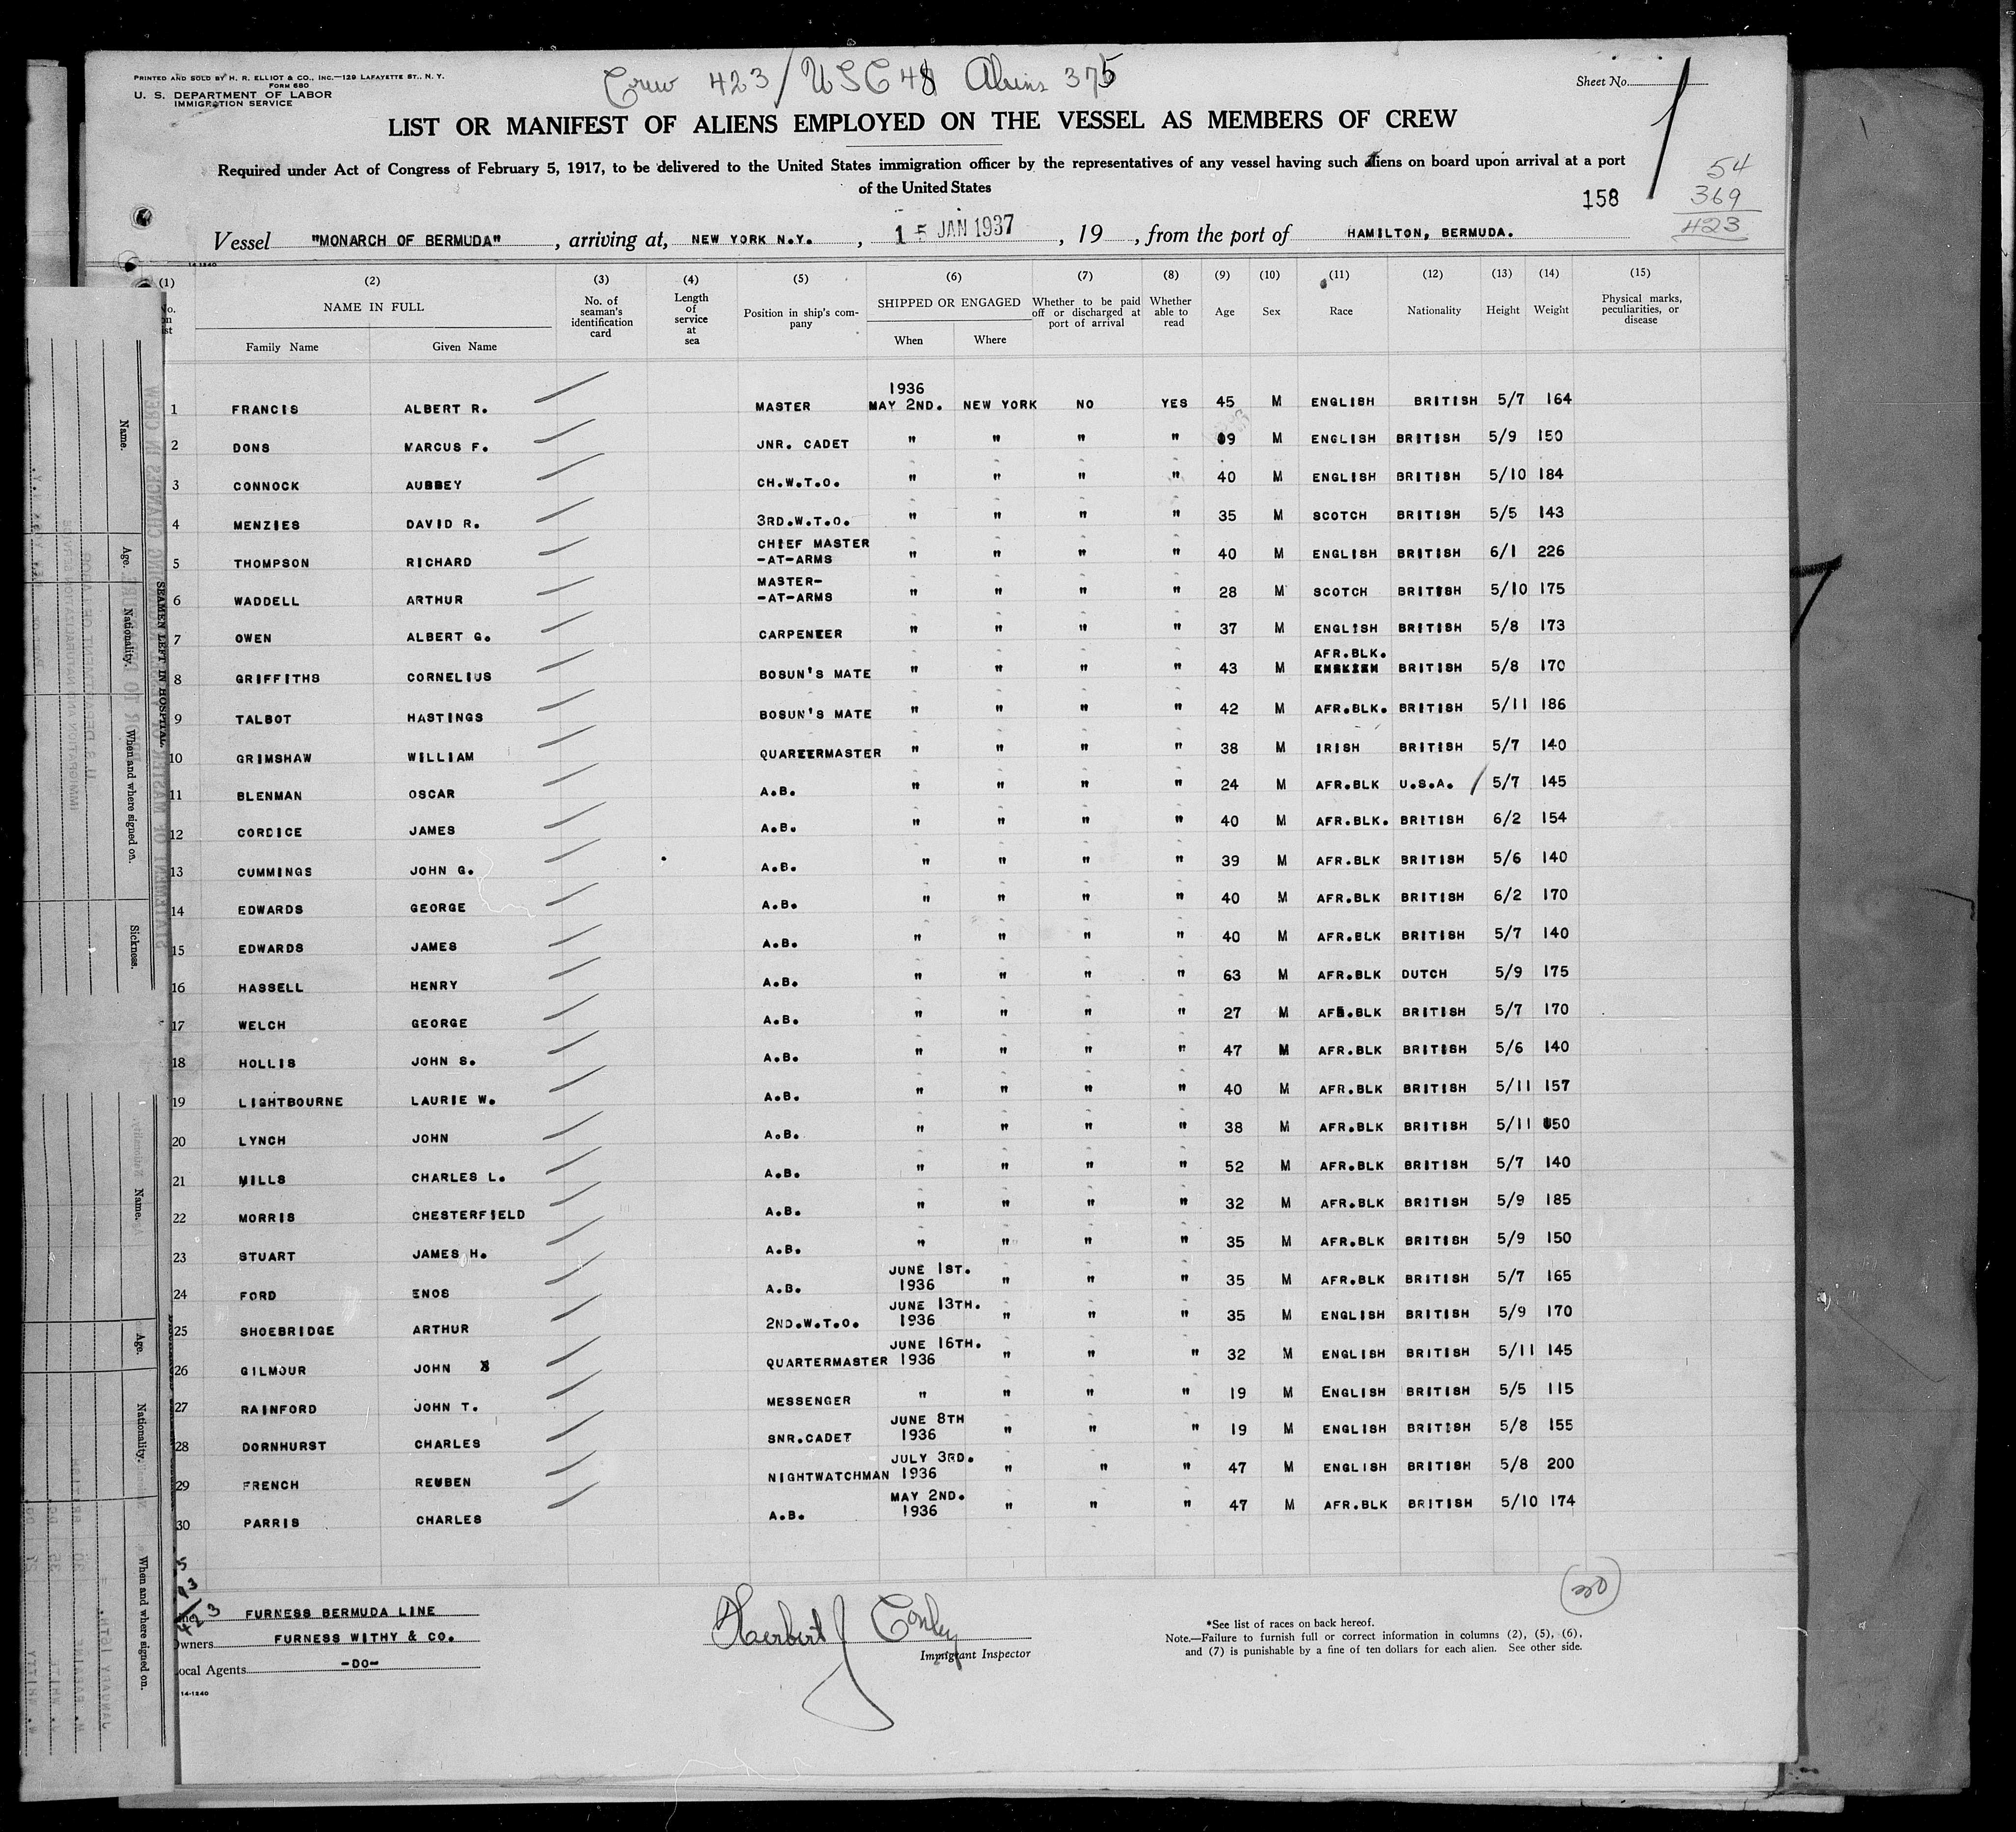 PRINTED AND SOLD BY H. R. ELLIOT & CO., INC.—129 LAFAYETTE ST., N. Y.
FORM 680
U. S. DEPARTMENT OF LABOR
IMMIGRATION SERVICE
Crew 423 / USC 48 Aliens 375
Sheet No. 1
LIST OR MANIFEST OF ALIENS EMPLOYED ON THE VESSEL AS MEMBERS OF CREW
Required under Act of Congress of February 5, 1917, to be delivered to the United States immigration officer by the representatives of any vessel having such aliens on board upon arrival at a port
of the United States
158
54
369
423
Vessel "MONARCH OF BERMUDA", arriving at, NEW YORK N.Y., 15 JAN 1937, 19, from the port of HAMILTON, BERMUDA.
14-1240
(1) (2) (3) (4) (5) (6) (7) (8) (9) (10) (11) (12) (13) (14) (15)
NAME IN FULL
Family Name Given Name
No. of seaman's identification card
Length of service at sea
Position in ship's company
SHIPPED OR ENGAGED
When Where
Whether to be paid off or discharged at port of arrival
Whether able to read
Age Sex Race Nationality Height Weight
Physical marks, peculiarities, or disease
1 FRANCIS ALBERT R. MASTER 1936 MAY 2ND. NEW YORK NO YES 45 M ENGLISH BRITISH 5/7 164
2 DONS MARCUS F. JNR. CADET " " " " 9 M ENGLISH BRITISH 5/9 150
3 CONNOCK AUBREY CH.W.T.O. " " " " 40 M ENGLISH BRITISH 5/10 184
4 MENZIES DAVID R. 3RD.W.T.O. " " " " 35 M SCOTCH BRITISH 5/5 143
5 THOMPSON RICHARD CHIEF MASTER -AT-ARMS " " " " 40 M ENGLISH BRITISH 6/1 226
6 WADDELL ARTHUR MASTER- -AT-ARMS " " " " 28 M SCOTCH BRITISH 5/10 175
7 OWEN ALBERT G. CARPENTER " " " " 37 M ENGLISH BRITISH 5/8 173
8 GRIFFITHS CORNELIUS BOSUN'S MATE " " " " 43 M AFR.BLK. BRITISH 5/8 170
9 TALBOT HASTINGS BOSUN'S MATE " " " " 42 M AFR.BLK. BRITISH 5/11 186
10 GRIMSHAW WILLIAM QUARTERMASTER " " " " 38 M IRISH BRITISH 5/7 140
11 BLENMAN OSCAR A.B. " " " " 24 M AFR.BLK U.S.A. 5/7 145
12 CORDICE JAMES A.B. " " " " 40 M AFR.BLK. BRITISH 6/2 154
13 CUMMINGS JOHN G. A.B. " " " " 39 M AFR.BLK BRITISH 5/6 140
14 EDWARDS GEORGE A.B. " " " " 40 M AFR.BLK BRITISH 6/2 170
15 EDWARDS JAMES A.B. " " " " 40 M AFR.BLK BRITISH 5/7 140
16 HASSELL HENRY A.B. " " " " 63 M AFR.BLK DUTCH 5/9 175
17 WELCH GEORGE A.B. " " " " 27 M AFR.BLK BRITISH 5/7 170
18 HOLLIS JOHN S. A.B. " " " " 47 M AFR.BLK BRITISH 5/6 140
19 LIGHTBOURNE LAURIE W. A.B. " " " " 40 M AFR.BLK BRITISH 5/11 157
20 LYNCH JOHN A.B. " " " " 38 M AFR.BLK BRITISH 5/11 150
21 MILLS CHARLES L. A.B. " " " " 52 M AFR.BLK BRITISH 5/7 140
22 MORRIS CHESTERFIELD A.B. " " " " 32 M AFR.BLK BRITISH 5/9 185
23 STUART JAMES H. A.B. " " " " 35 M AFR.BLK BRITISH 5/9 150
24 FORD ENOS A.B. JUNE 1ST. 1936 " " " 35 M AFR.BLK BRITISH 5/7 165
25 SHOEBRIDGE ARTHUR 2ND.W.T.O. JUNE 13TH. 1936 " " " 35 M ENGLISH BRITISH 5/9 170
26 GILMOUR JOHN QUARTERMASTER JUNE 16TH. 1936 " " " 32 M ENGLISH BRITISH 5/11 145
27 RAINFORD JOHN T. MESSENGER " " " " 19 M ENGLISH BRITISH 5/5 115
28 DORNHURST CHARLES SNR.CADET JUNE 8TH 1936 " " " 19 M ENGLISH BRITISH 5/8 155
29 FRENCH REUBEN NIGHTWATCHMAN JULY 3RD. 1936 " " " 47 M ENGLISH BRITISH 5/8 200
30 PARRIS CHARLES A.B. MAY 2ND. 1936 " " " 47 M AFR.BLK BRITISH 5/10 174
423
FURNESS BERMUDA LINE
Owners FURNESS WITHY & CO.
Local Agents -DO-
14-1240
Herbert J Conley
Immigrant Inspector
30
*See list of races on back hereof.
Note.—Failure to furnish full or correct information in columns (2), (5), (6),
and (7) is punishable by a fine of ten dollars for each alien. See other side.
SEAMEN LEFT IN HOSPITAL
Name. Age. Nationality. When and where signed on. Sickness.
Name. Age. Nationality. When and where signed on.